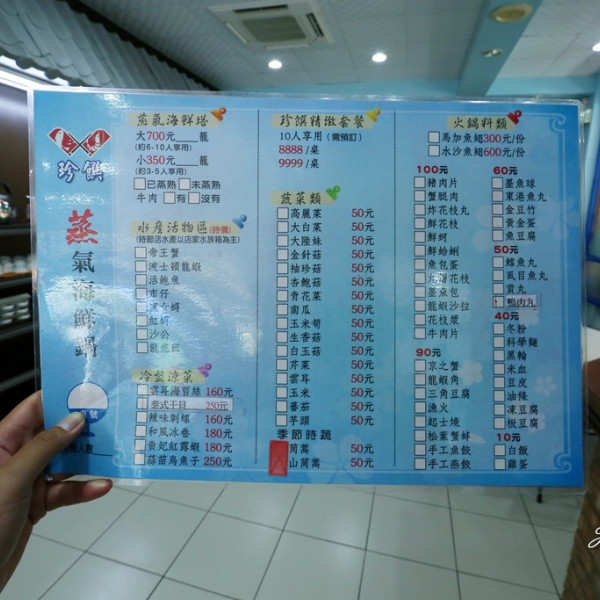 珍饌
蒸氣海鮮鍋
蒸氣海鮮塔
大700元 籠
(約6-10人享用)
小350元 籠
(約3-5人享用)
已蒸熟 未蒸熟
牛肉 有 沒有
水產活物區(時價)
(時節活水產以店家水族箱為主)
帝王蟹
波士頓龍蝦
活鮑魚
沙公
龍虎斑
冷盤涼菜
雲耳海蜇絲 160元
泰式干貝 250元
辣味刺螺 160元
和風冰卷 180元
貴妃紅露蝦 180元
蒜苗烏魚子 250元
珍饌精緻套餐
10人享用(需預訂)
8888/桌
9999/桌
蔬菜類
高麗菜 50元
大白菜 50元
大陸妹 50元
金針菇 50元
柚珍菇 50元
杏鮑菇 50元
青花菜 50元
南瓜 50元
玉米筍 50元
生香菇 50元
白玉菇 50元
芹菜 50元
雲耳 50元
玉米 50元
番茄 50元
芋頭 50元
季節時蔬
茼蒿 50元
山茼蒿 50元
火鍋料類
馬加魚翅300元/份
水沙魚翅600元/份
100元
豬肉片
蟹腿肉
炸花枝丸
鮮花枝
鮮蚵
鮮蛤蜊
魚包蛋
花枝丸
墨魚包
龍蝦沙拉
花枝漿
牛肉片
90元
京之蟹
龍蝦角
三角豆腐
漁火
起士燒
松葉蟹鮮
手工魚餃
手工燕餃
60元
墨魚球
東港魚丸
金豆竹
黃金蛋
魚豆腐
50元
鱈魚丸
虱目魚丸
貢丸
鴨肉丸
40元
冬粉
科學麵
黑輪
米血
豆皮
油條
凍豆腐
板豆腐
10元
白飯
雞蛋